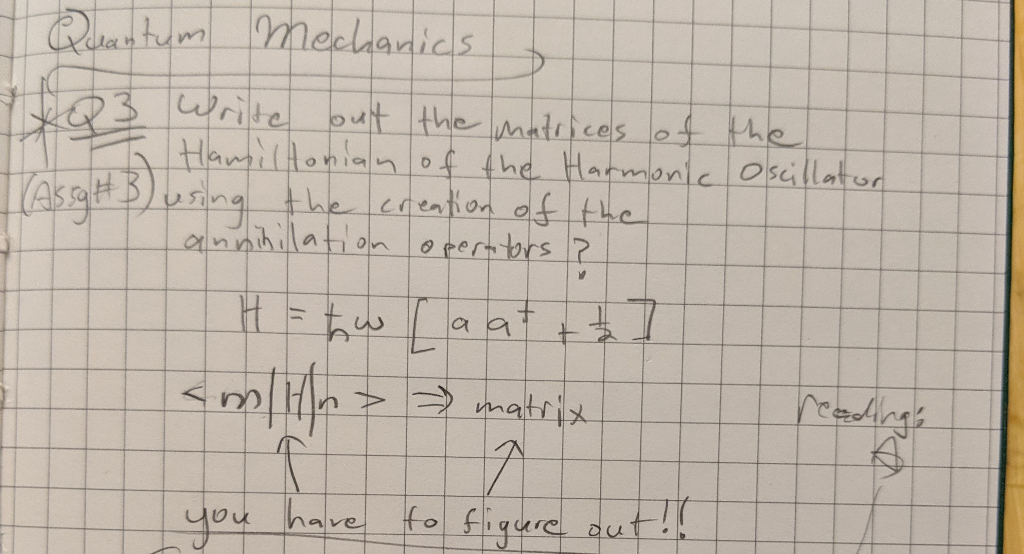 Quantum Mechanics
* Q3 Write out the matrices of the
Hamiltonian of the Harmonic Oscillator
(Assg#3) using the creation of the
annihilation opertors?
H = ħω [ a a† + ½ ]
<m|H|n> ⇒ matrix
reading:
you have to figure out!!